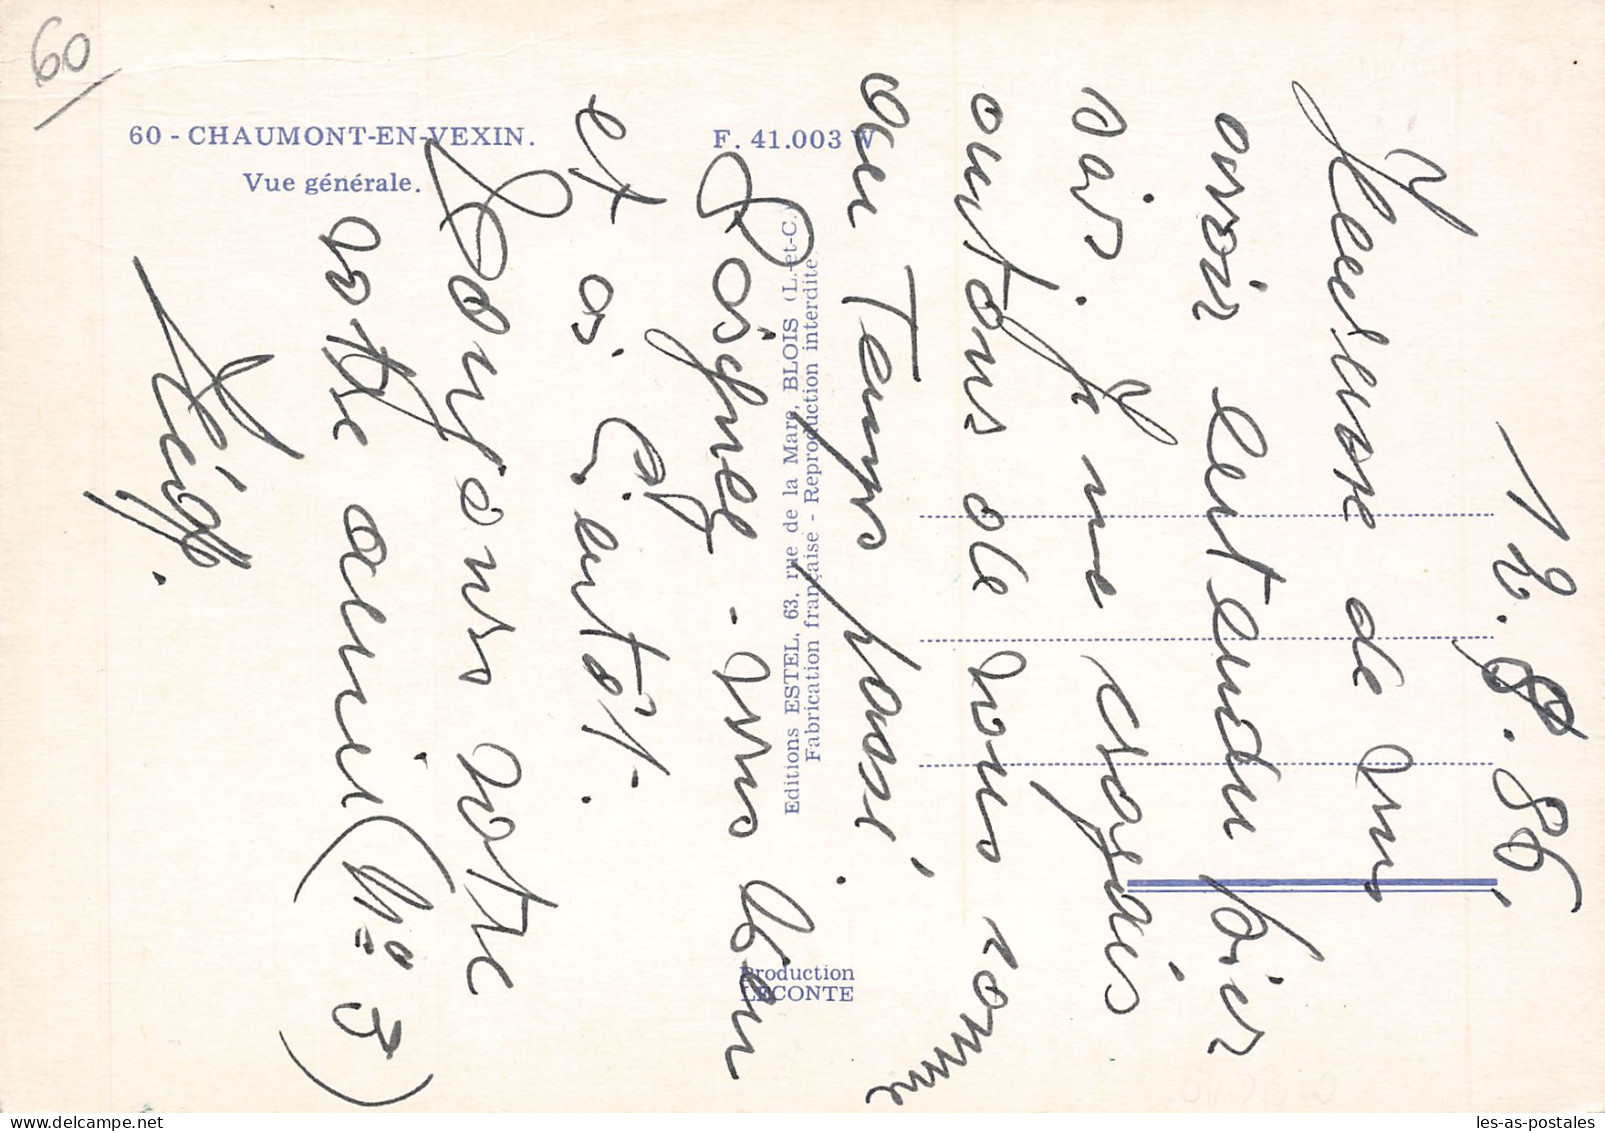 60
60 - CHAUMONT-EN-VEXIN.
Vue générale.
F. 41.003 W
Editions ESTEL, 63, rue de la Mare, BLOIS (L.-et-C.)
Fabrication française - Reproduction interdite
Production
LECONTE
12.8.86,
Heureuse de vous
avoir entendu hier
soir. Je me croyais
autour de vous comme
au Temps passé.
Soignez-vous bien
et à bientôt.
Toujours votre
votre amie (N° 3)
les-as-postales